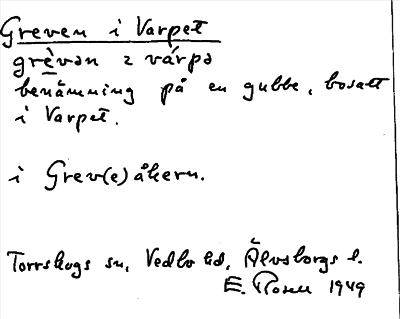 Greven i Varpet
grèvən ɪ várpə
benämning på en gubbe, bosatt
i Varpet.
i Grev(e)åkern.
Torrskogs sn, Vedbo hd, Älvsborgs l.
E. Rosen 1949